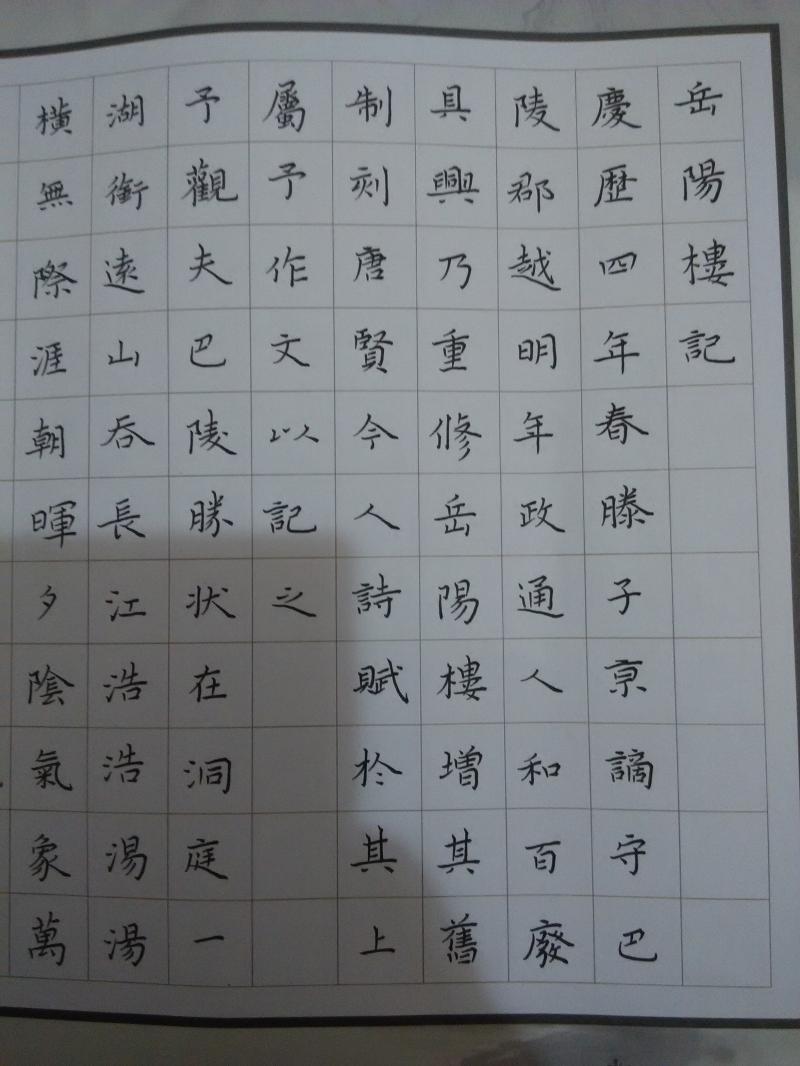 岳陽樓記
慶歷四年春滕子京謫守巴
陵郡越明年政通人和百廢
具興乃重修岳陽樓增其舊
制刻唐賢今人詩賦於其上
屬予作文以記之
予觀夫巴陵勝状在洞庭一
湖銜遠山吞長江浩浩湯湯
橫無際涯朝暉夕陰氣象萬